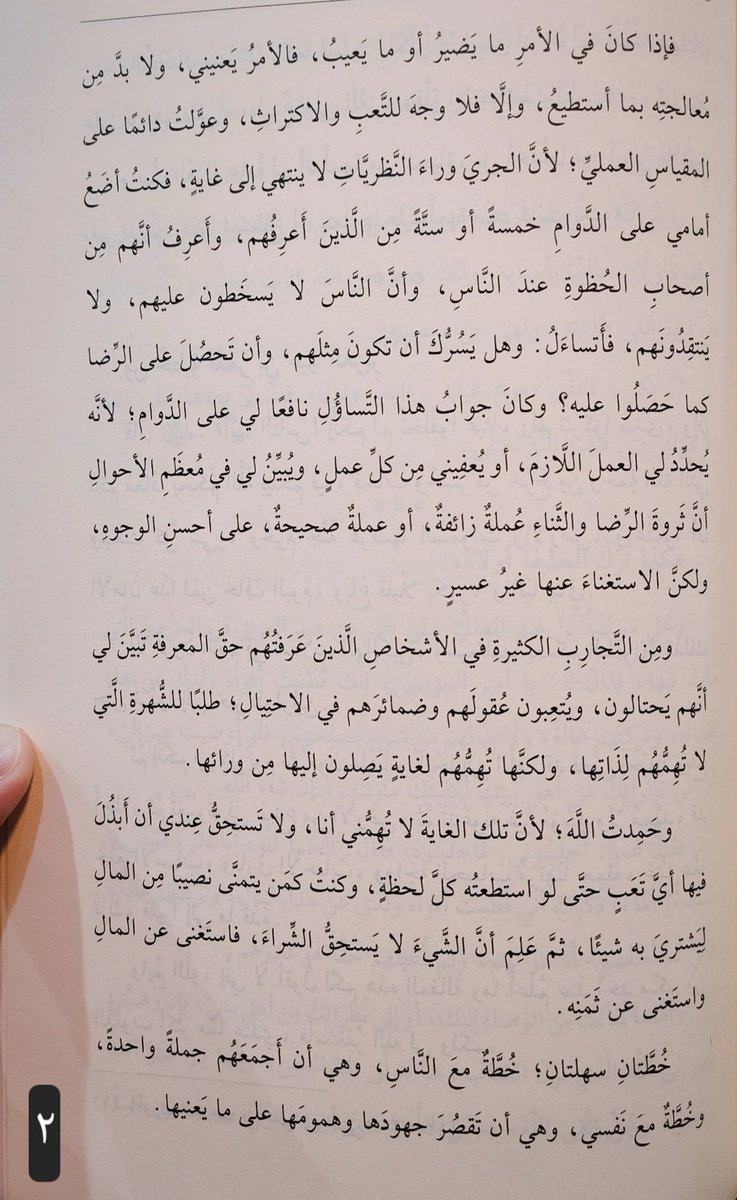 فإذا كانَ في الأمرِ ما يَضيرُ أو ما يَعيبُ، فالأمرُ يَعنيني، ولا بدَّ مِن
مُعالجتِه بما أستطيعُ، وإلَّا فلا وجهَ للتَّعبِ والاكتراثِ، وعوَّلتُ دائمًا على
المقياسِ العمليِّ؛ لأنَّ الجريَ وراءَ النَّظريَّاتِ لا ينتهي إلى غايةٍ، فكنتُ أضَعُ
أمامي على الدَّوامِ خمسةً أو ستَّةً مِن الَّذينَ أَعرِفُهم، وأَعرِفُ أنَّهم مِن
أصحابِ الحُظوةِ عندَ النَّاسِ، وأنَّ النَّاسَ لا يَسخَطون عليهم، ولا
يَنتقِدُونَهم، فأَتساءَلُ: وهل يَسُرُّكَ أن تكونَ مِثلَهم، وأن تَحصُلَ على الرِّضا
كما حَصَلُوا عليه؟ وكانَ جوابُ هذا التَّساؤُلِ نافعًا لي على الدَّوامِ؛ لأنَّه
يُحدِّدُ لي العملَ اللَّازمَ، أو يُعفِيني مِن كلِّ عملٍ، ويُبيِّنُ لي في مُعظَمِ الأحوالِ
أنَّ ثَروةَ الرِّضا والثَّناءِ عُملةٌ زائفةٌ، أو عملةٌ صحيحةٌ، على أحسنِ الوجوهِ،
ولكنَّ الاستغناءَ عنها غيرُ عسيرٍ.
ومِن التَّجارِبِ الكثيرةِ في الأشخاصِ الَّذينَ عَرَفتُهُم حقَّ المعرفةِ تَبيَّنَ لي
أنَّهم يَحتالون، ويُتعِبون عُقولَهم وضمائرَهم في الاحتِيالِ؛ طلبًا للشُّهرةِ الَّتي
لا تُهِمُّهُم لِذَاتِها، ولكنَّها تُهِمُّهُم لغايةٍ يَصِلون إليها مِن ورائها.
وحَمِدتُ اللَّهَ؛ لأنَّ تلك الغايةَ لا تُهِمُّني أنا، ولا تَستحِقُّ عِندي أن أَبذُلَ
فيها أيَّ تَعَبٍ حتَّى لو استطعتُه كلَّ لحظةٍ، وكنتُ كمَن يتمنَّى نصيبًا مِن المالِ
لِيَشتريَ به شيئًا، ثمَّ عَلِمَ أنَّ الشَّيءَ لا يَستحِقُّ الشِّراءَ، فاستَغنى عن المالِ
واستَغنى عن ثَمَنِه.
خُطَّتانِ سهلتانِ؛ خُطَّةٌ معَ النَّاسِ، وهي أن أَجمَعَهُم جملةً واحدةً،
وخُطَّةٌ معَ نَفسي، وهي أن تَقصُرَ جهودَها وهمومَها على ما يَعنيها.
٢